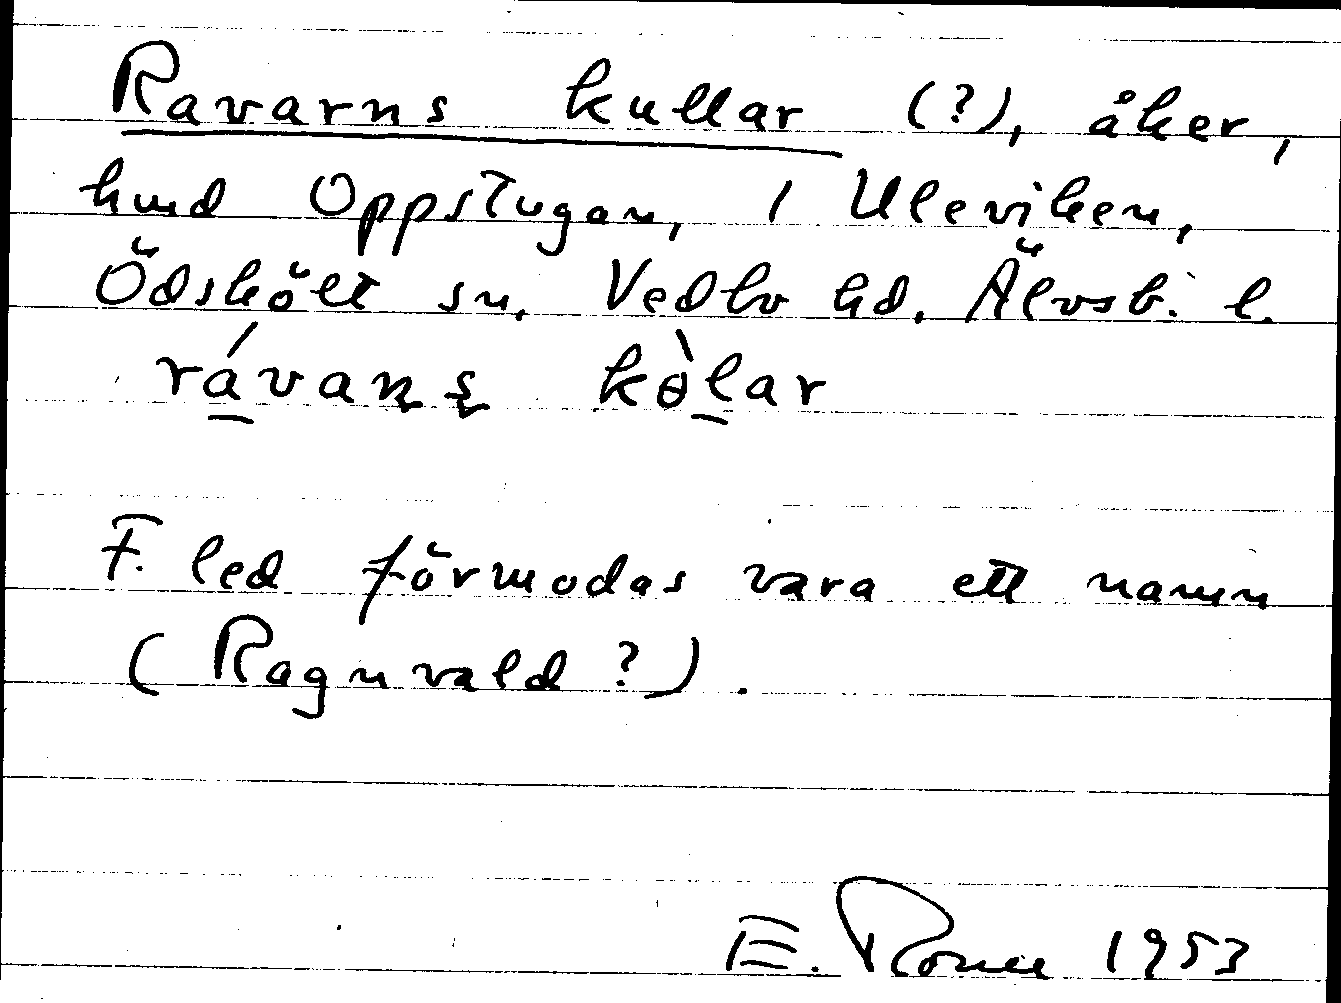 Ravarns kullar (?), åker,
hmd Oppstugan, i Uleviken,
Ödskölt sn, Vedbo hd, Älvsb. l.
rávaṉs kò̱lar
F. led förmodas vara ett namn
(Ragnvald?).
E. 1953